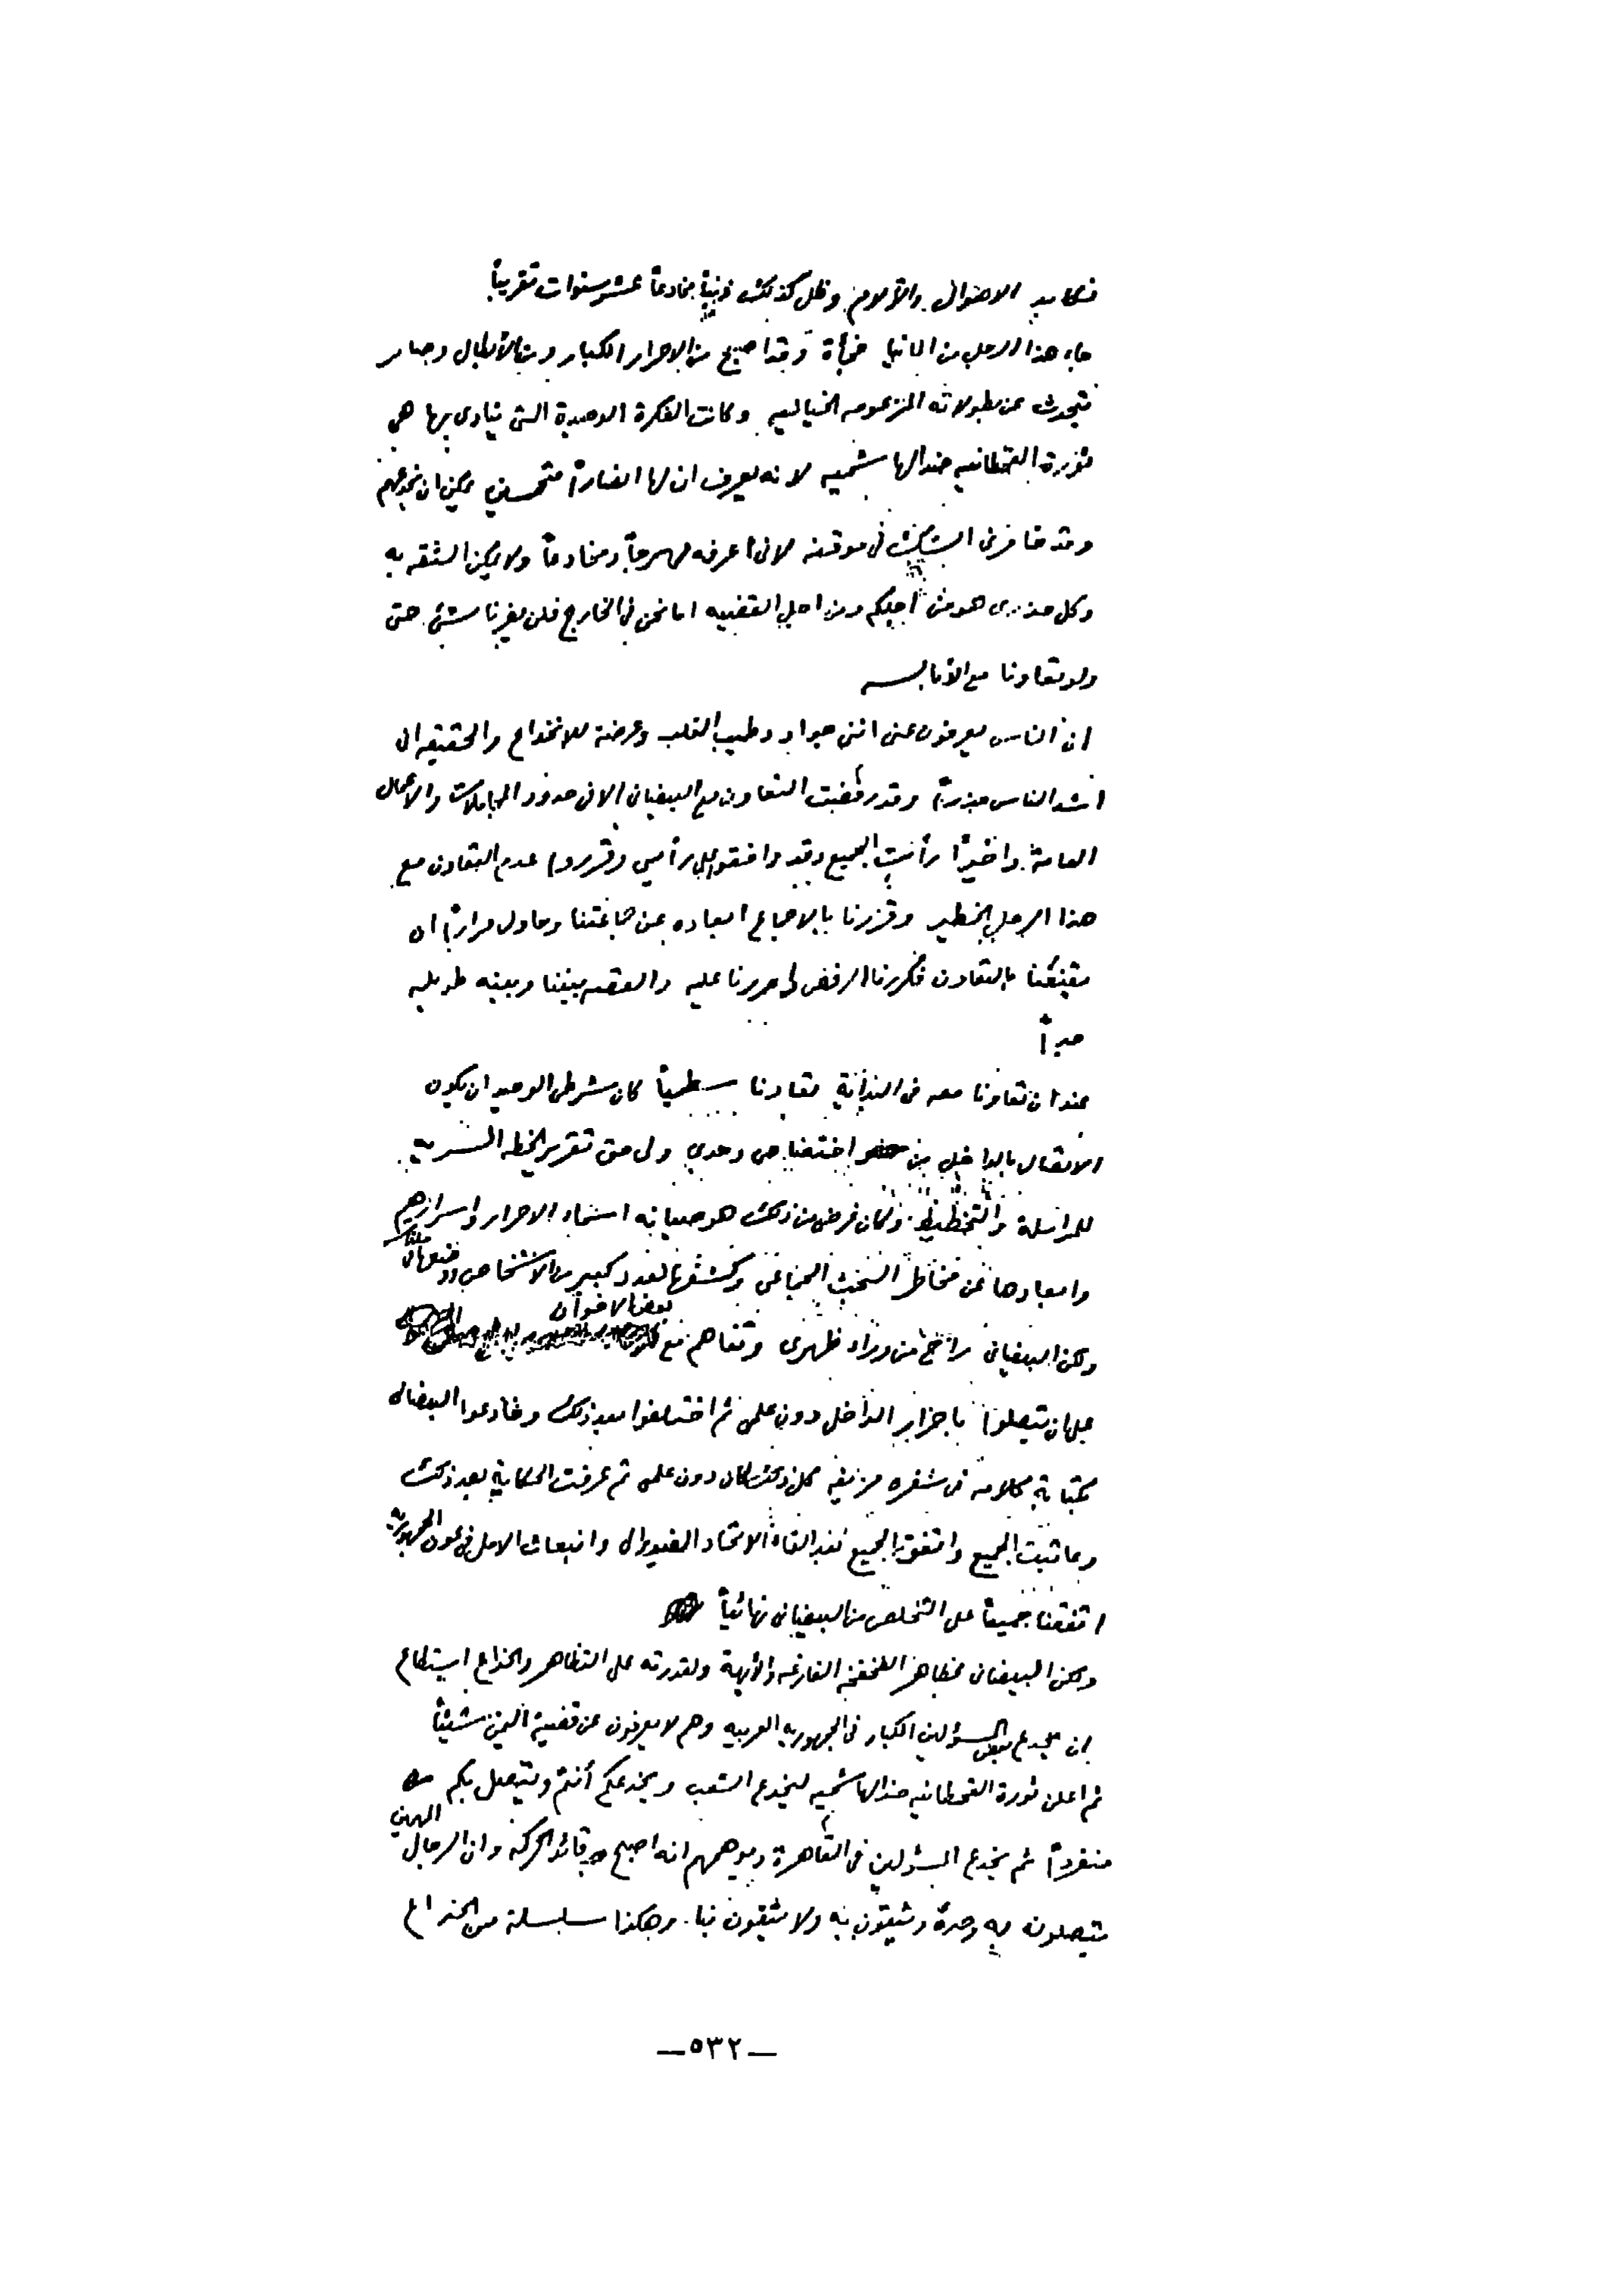 نكابد الاهوال والآلام وظل كذلك ذنباً مخادعاً عشر سنوات تقريباً
جاء هذا الرجل من المانيا فجأة وقد اصبح من الاحرار الكبار ومن الأبطال وصار
يتحدث عن بطولاته المزعومه الخياليه وكانت الفكرة الوحيدة التى ينادى بها هى
ثورة القحطانيه ضد الهاشميه لانه يعرف ان لها انصاراً متحمسين يمكن ان يخدعهم
وقد خامرنى الشك فى موقفه لانى أعرفه مهرجاً ومخادعاً ولا يمكن الثقه به
وكل حذرى هو من أجلكم ومن اجل القضيه اما نحن فى الخارج فلن يضرنا شئ حتى
ولو تعاونا مع الأبالسه
ان الناس يعرفون عنى اننى جواد وطيب القلب وعرضة للانخداع والحقيقه انى
اشد الناس حذراً وقد رفضت التعاون مع البيضانى الا فى حدود المجاملات والأعمال
العامة واخيراً رأيت الجميع وقد وافقوا على رأيى وقرروا عدم التعاون مع
هذا الرجل الخطير وقررنا بالاجماع ابعاده عن جماعتنا وحاول مراراً ان
يقنعنا بالتعاون فكررنا الرفض واصررنا عليه والقصه بيننا وبينه طويله
جداً
عندما تعاونا معه فى البداية تعاونا سطحياً كان شرطى الوحيد ان يكون
الاتصال بالداخل من اختصاصى وحدى ولى حق تقرير الخطه السريه
للمراسلة والتخطيط وكان غرضى من ذلك هو صيانه اسماء الاحرار واسرارهم
وابعادها عن مخاطر البحث الجماعى وكشفها لعدد كبير من الأشخاص
ولكن البيضانى راح من وراء ظهرى وتفاهم مع بعض الاخوان
على ان يتصلوا باحرار الداخل دون علمى ثم اختلفوا بعد ذلك وخادعوا البيضانى
بكتابة كلامه فى شفره مزيفه كل ذلك كان دون علمى ثم عرفت الحكاية بعد ذلك
وعاتبت الجميع واتفق الجميع بعد الغاء الاتحاد الفيدرالى وانبعاث الامل فى عون الجمهورية
اتفقنا جميعاً على التخلص من البيضانى نهائياً
ولكن البيضانى بمظاهر الفخفخه الفارغه والأبهة ولقدرته على التظاهر والخداع استطاع
ان يخدع بعض المسؤلين الكبار فى الجمهوريه العربيه وهم لا يعرفون عن قضية اليمن شيئاً
ثم اعلن ثورة القحطانيه ضد الهاشميه ليخدع الشعب ويخدعكم أنتم ويتصل بكم
منفرداً ثم يخدع المسؤلين فى القاهرة ويوهمهم انه اصبح قائد الحركه وان الرجال المهمين
يتصلون به وحده ويثقون به ولا يثقون بنا. وهكذا سلسلة من الخداع
—٥٣٢—